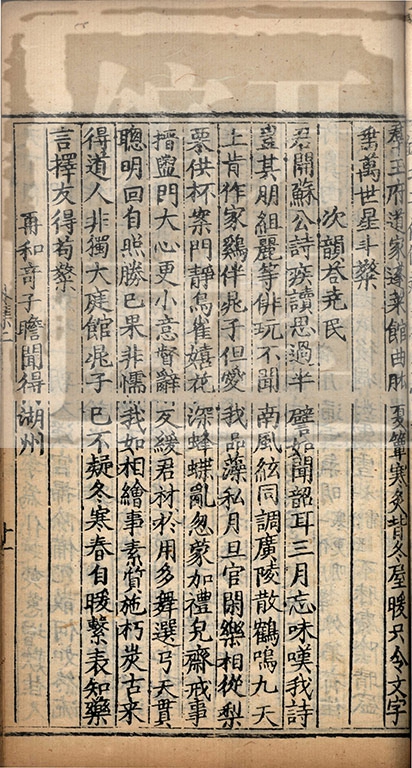 羣玉府道家蓬萊館曲肱夏簟寒炙背冬屋暖只令文字
垂萬世星斗粲
次韻荅堯民
君聞蘇公詩疾讀思過半譬如聞韶耳三月忘味嘆我詩
豈其朋組麗等俳玩不聞南風絃同調廣陵散鶴鳴九天
上肯作家鷄伴晁子但愛我品藻私月旦官閑樂相從梨
栗供杯案門靜鳥雀嬉花深蜂蝶亂忽蒙加禮皃齋戒事
搢盥門大心更小意督辭反緩君材於用多舞選弓矢貫
聰明回自照勝己果非懦我如相繪事素質施朽炭古來
得道人非獨大庭館晁子已不疑冬寒春自暖繫表知藥
言擇友得荀粲
再和寄子瞻聞得湖州